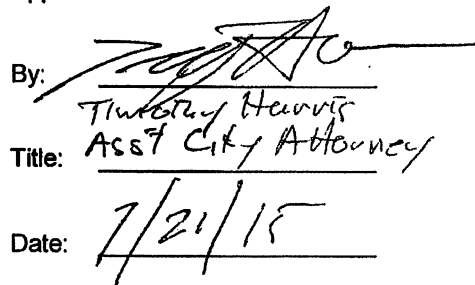 By:
Timothy Harris
Title: Ass't City Attorney
Date: 7/21/15